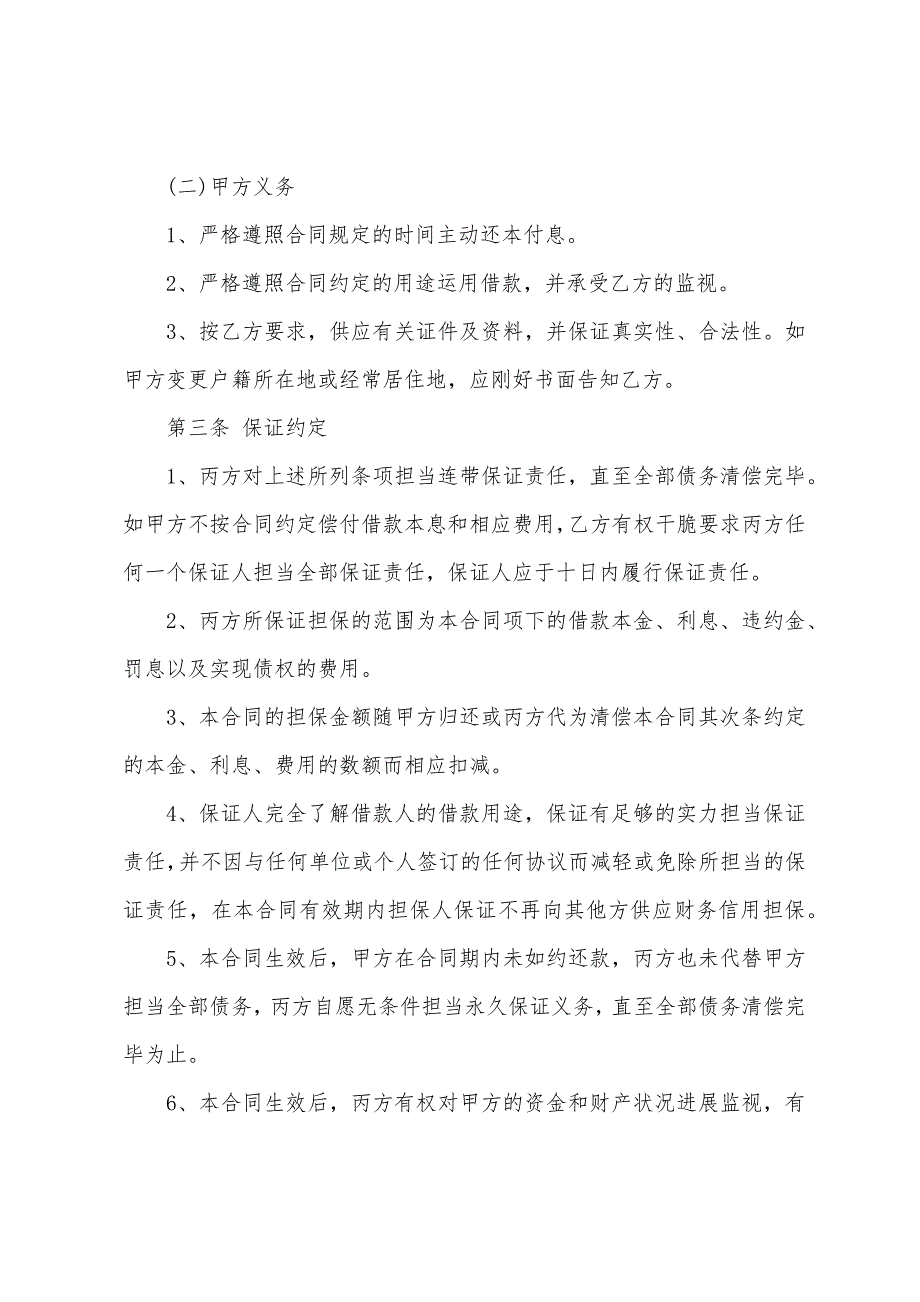 (二)甲方义务
1、严格遵照合同规定的时间主动还本付息。
2、严格遵照合同约定的用途运用借款，并承受乙方的监视。
3、按乙方要求，供应有关证件及资料，并保证真实性、合法性。如
甲方变更户籍所在地或经常居住地，应刚好书面告知乙方。
第三条 保证约定
1、丙方对上述所列条项担当连带保证责任，直至全部债务清偿完毕。
如甲方不按合同约定偿付借款本息和相应费用,乙方有权干脆要求丙方任
何一个保证人担当全部保证责任，保证人应于十日内履行保证责任。
2、丙方所保证担保的范围为本合同项下的借款本金、利息、违约金、
罚息以及实现债权的费用。
3、本合同的担保金额随甲方归还或丙方代为清偿本合同其次条约定
的本金、利息、费用的数额而相应扣减。
4、保证人完全了解借款人的借款用途，保证有足够的实力担当保证
责任,并不因与任何单位或个人签订的任何协议而减轻或免除所担当的保
证责任，在本合同有效期内担保人保证不再向其他方供应财务信用担保。
5、本合同生效后，甲方在合同期内未如约还款，丙方也未代替甲方
担当全部债务,丙方自愿无条件担当永久保证义务,直至全部债务清偿完
毕为止。
6、本合同生效后，丙方有权对甲方的资金和财产状况进展监视，有